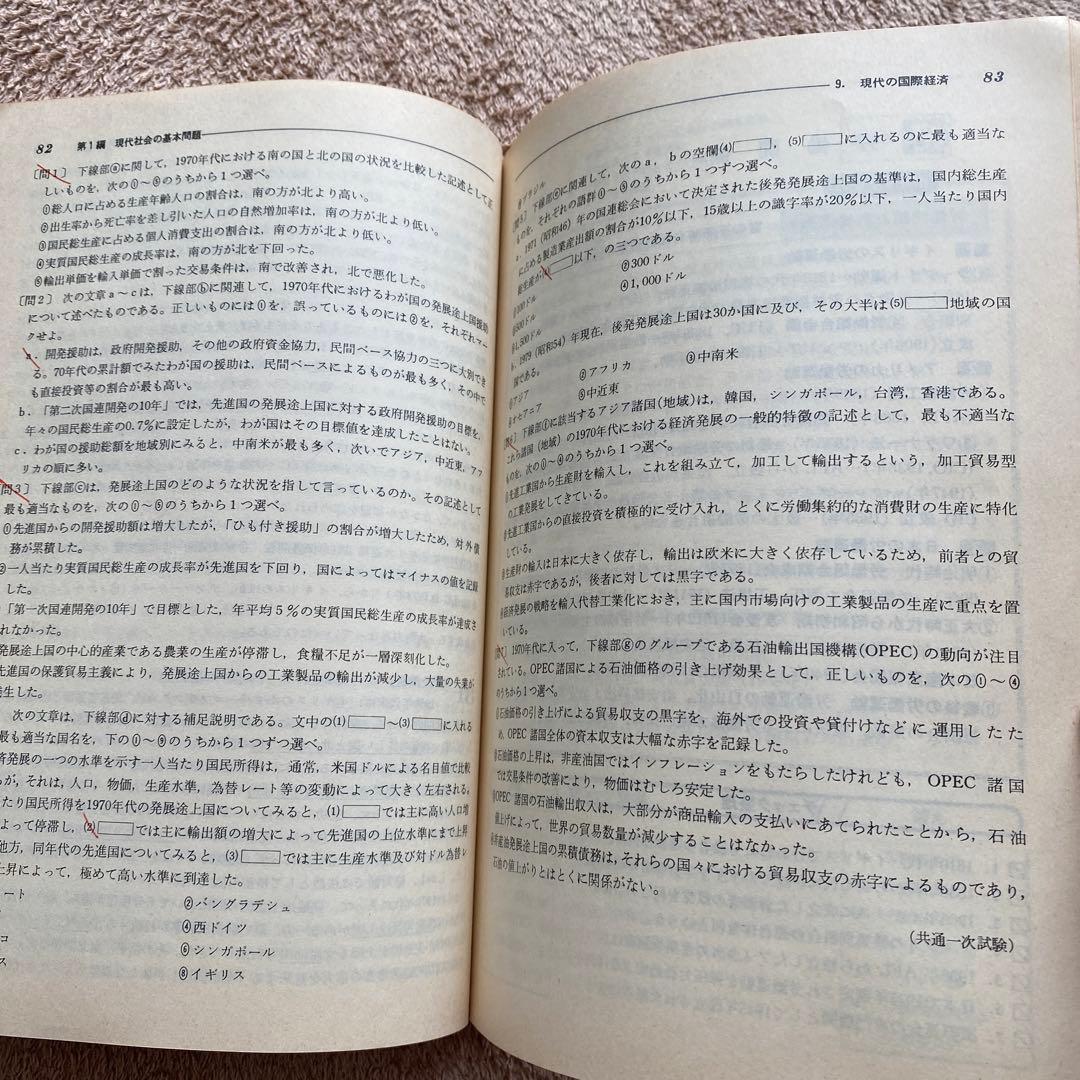 82 第1編 現代社会の基本問題
〔問1〕 下線部ⓐに関して，1970年代における南の国と北の国の状況を比較した記述として正
しいものを，次の①～⑤のうちから1つ選べ。
①総人口に占める生産年齢人口の割合は，南の方が北より高い。
②出生率から死亡率を差し引いた人口の自然増加率は，南の方が北より低い。
③国民総生産に占める個人消費支出の割合は，南の方が北より低い。
④実質国民総生産の成長率は，南の方が北を下回った。
⑤輸出単価を輸入単価で割った交易条件は，南で改善され，北で悪化した。
〔問2〕 次の文章a～cは，下線部ⓑに関連して，1970年代におけるわが国の発展途上国援助
について述べたものである。正しいものには①を，誤っているものには②を，それぞれマー
クせよ。
a．開発援助は，政府開発援助，その他の政府資金協力，民間ベース協力の三つに大別でき
る。70年代の累計額でみたわが国の援助は，民間ベースによるものが最も多く，その中で
も直接投資等の割合が最も高い。
b．「第二次国連開発の10年」では，先進国の発展途上国に対する政府開発援助の目標を，
年々の国民総生産の0.7％に設定したが，わが国はその目標値を達成したことはない。
c．わが国の援助総額を地域別にみると，中南米が最も多く，次いでアジア，中近東，アフ
リカの順に多い。
〔問3〕 下線部ⓒは，発展途上国のどのような状況を指して言っているのか。その記述として
最も適当なものを，次の①～⑤のうちから1つ選べ。
①先進国からの開発援助額は増大したが，「ひも付き援助」の割合が増大したため，対外債
務が累積した。
②一人当たり実質国民総生産の成長率が先進国を下回り，国によってはマイナスの値を記録
した。
「第一次国連開発の10年」で目標とした，年平均5％の実質国民総生産の成長率が達成さ
れなかった。
発展途上国の中心的産業である農業の生産が停滞し，食糧不足が一層深刻化した。
先進国の保護貿易主義により，発展途上国からの工業製品の輸出が減少し，大量の失業が
発生した。
次の文章は，下線部ⓓに対する補足説明である。文中の(1)□～(3)□に入れる
最も適当な国名を，下の①～⑨のうちから1つずつ選べ。
済発展の一つの水準を示す一人当たり国民所得は，通常，米国ドルによる名目値で比較
が，それは，人口，物価，生産水準，為替レート等の変動によって大きく左右される。
たり国民所得を1970年代の発展途上国についてみると，(1)□では主に人口増
よって停滞し，(2)□では主に輸出額の増大によって先進国の上位水準にまで上昇
他方，同年代の先進国についてみると，(3)□では主に生産水準及び対ドル為替レ
上昇によって，極めて高い水準に到達した。
ート ②バングラデシュ
④西ドイツ
コ ⑥シンガポール
ス ⑧イギリス
9. 現代の国際経済 83
ブラジル
下線部ⓔに関連して，次のa，bの空欄(4)□，(5)□に入れるのに最も適当な
ものを，それぞれの語群①～⑤のうちから1つずつ選べ。
a．1971（昭和46）年の国連総会において決定された後発発展途上国の基準は，国内総生産
に占める製造業産出額の割合が10％以下，15歳以上の識字率が20％以下，一人当たり国内
総生産が(4)□以下，の三つである。
①100ドル ②300ドル
③500ドル ④1,000ドル
1,500ドル
b．1979（昭和54）年現在，後発発展途上国は30か国に及び，その大半は(5)□地域の国
国である。
①アジア ②アフリカ ③中南米
④オセアニア ⑤中近東
下線部ⓕに該当するアジア諸国(地域)は，韓国，シンガポール，台湾，香港である。
これら諸国（地域）の1970年代における経済発展の一般的特徴の記述として，最も不適当な
ものを，次の①～④のうちから1つ選べ。
①先進工業国から生産財を輸入し，これを組み立て，加工して輸出するという，加工貿易型
の工業発展をしてきている。
②先進工業国からの直接投資を積極的に受け入れ，とくに労働集約的な消費財の生産に特化
している。
③生産財の輸入は日本に大きく依存し，輸出は欧米に大きく依存しているため，前者との貿
易収支は赤字であるが，後者に対しては黒字である。
④経済発展の戦略を輸入代替工業化におき，主に国内市場向けの工業製品の生産に重点を置
いている。
1970年代に入って，下線部ⓖのグループである石油輸出国機構(OPEC)の動向が注目
されている。OPEC諸国による石油価格の引き上げ効果として，正しいものを，次の①～④
のうちから1つ選べ。
①石油価格の引き上げによる貿易収支の黒字を，海外での投資や貸付けなどに運用したた
め，OPEC 諸国全体の資本収支は大幅な赤字を記録した。
②石油価格の上昇は，非産油国ではインフレーションをもたらしたけれども，OPEC 諸国
では交易条件の改善により，物価はむしろ安定した。
③OPEC 諸国の石油輸出収入は，大部分が商品輸入の支払いにあてられたことから，石油
値上げによって，世界の貿易数量が減少することはなかった。
④非産油発展途上国の累積債務は，それらの国々における貿易収支の赤字によるものであり，
石油の値上がりとはとくに関係がない。
(共通一次試験)